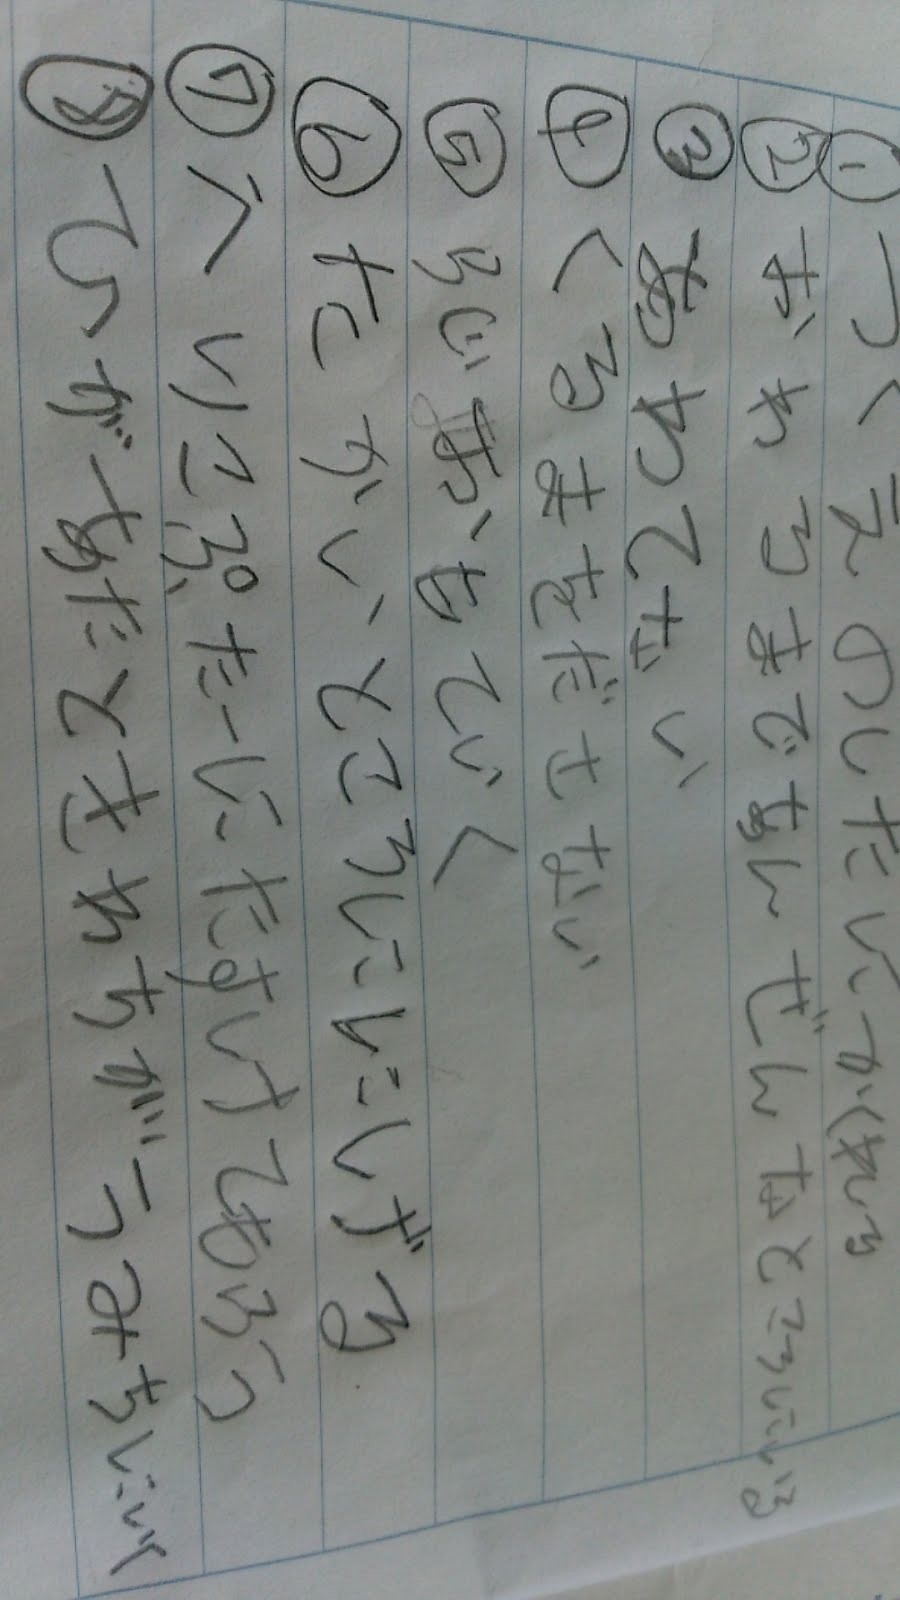 ① つくえのしたにかくれる
② おわるまであんぜんなところにいる
③ あわてない
④ くるまをださない
⑤ らじおもていく
⑥ たかいところににげる
⑦ へりこぷたーにたすけてもらう
⑧ ひがあたときわちがうみちにいく